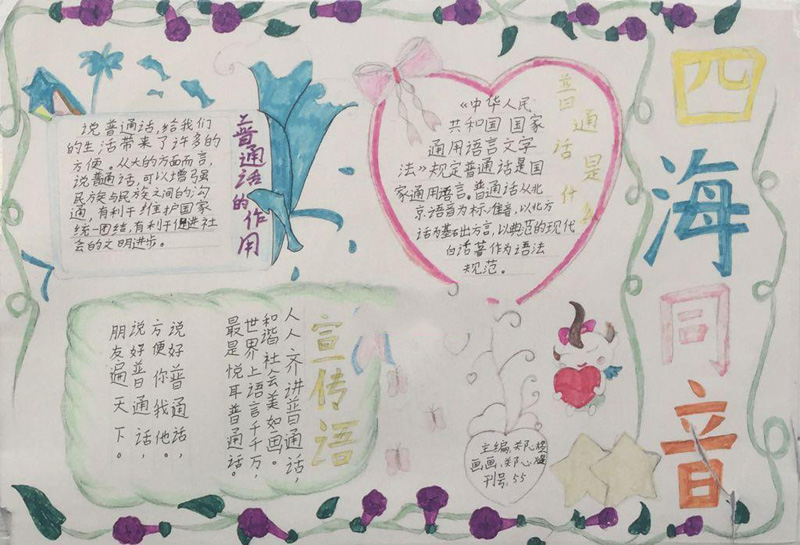 四海同音
普通话的作用
说普通话,给我们
的生活带来了许多的
方便。从大的方面而言,
说普通话,可以增强
民族与民族之间的沟
通,有利于维护国家
统一团结,有利于促进社
会的文明进步。
普通话是什么
《中华人民
共和国国家
通用语言文字
法》规定普通话是国
家通用语言。普通话从北
京语音为标准音,以北方
话为基础方言,以典范的现代
白话著作为语法
规范。
宣传语
人人齐讲普通话,
和谐社会美如画。
世界上语言千千万,
最是悦耳普通话。
说好普通话,
方便你我他。
说好普通话,
朋友遍天下。
主编:郑心
画画:郑心
刊号:55